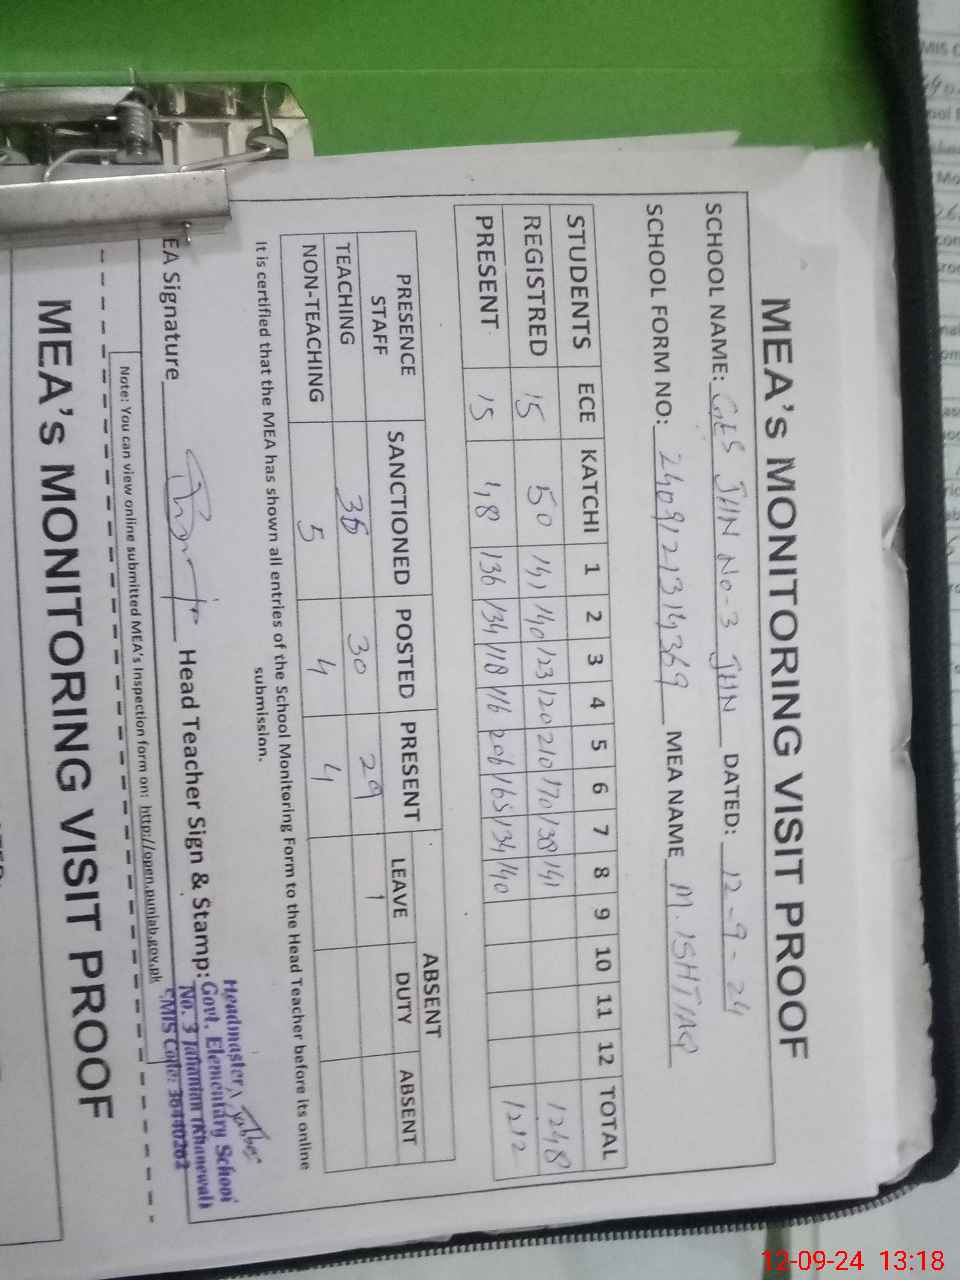 MEA's MONITORING VISIT PROOF
SCHOOL NAME: GES JHN No-3 JHN DATED: 12-9-24
SCHOOL FORM NO: 2409121314369 MEA NAME M. ISHTIAQ
STUDENTS ECE KATCHI 1 2 3 4 5 6 7 8 9 10 11 12 TOTAL
REGISTRED 15 50 141 140 123 120 210 170 138 141 1248
PRESENT 15 48 136 134 118 116 206 165 134 140 1212
ABSENT
PRESENCE STAFF SANCTIONED POSTED PRESENT LEAVE DUTY ABSENT
TEACHING 36 30 29 1
NON-TEACHING 5 4 4
It is certified that the MEA has shown all entries of the School Monitoring Form to the Head Teacher before its online
submission.
EA Signature Head Teacher Sign & Stamp:
Headmaster
Govt. Elementary School
No. 3 Jahanian (Khanewal)
EMIS Code:
Note: You can view online submitted MEA's Inspection form on: http://open.punjab.gov.pk
MEA's MONITORING VISIT PROOF
12-09-24 13:18